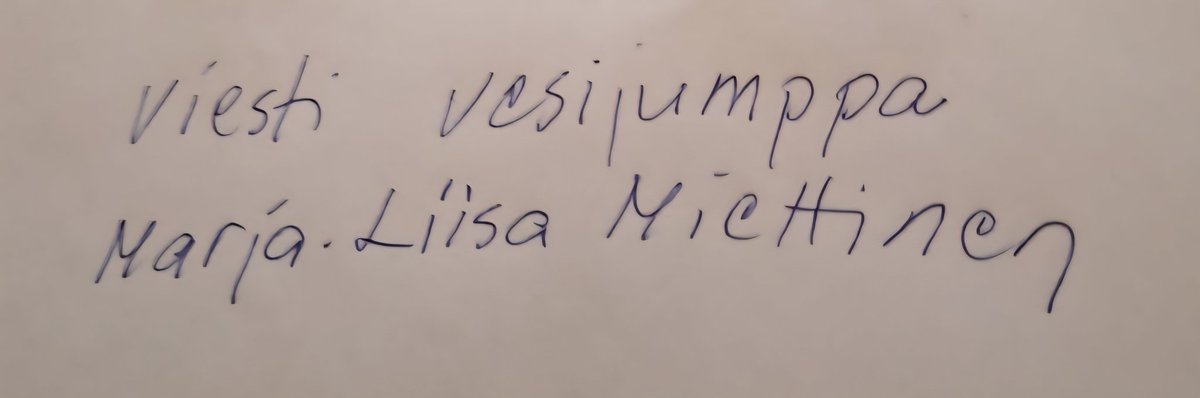 viesti vesijumppa
Marja-Liisa Miettinen